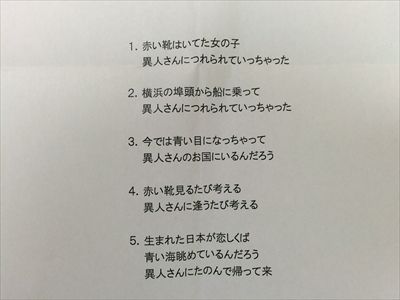 1. 赤い靴はいてた女の子
異人さんにつれられていっちゃった
2. 横浜の埠頭から船に乗って
異人さんにつれられていっちゃった
3. 今では青い目になっちゃって
異人さんのお国にいるんだろう
4. 赤い靴見るたび考える
異人さんに逢うたび考える
5. 生まれた日本が恋しくば
青い海眺めているんだろう
異人さんにたのんで帰って来